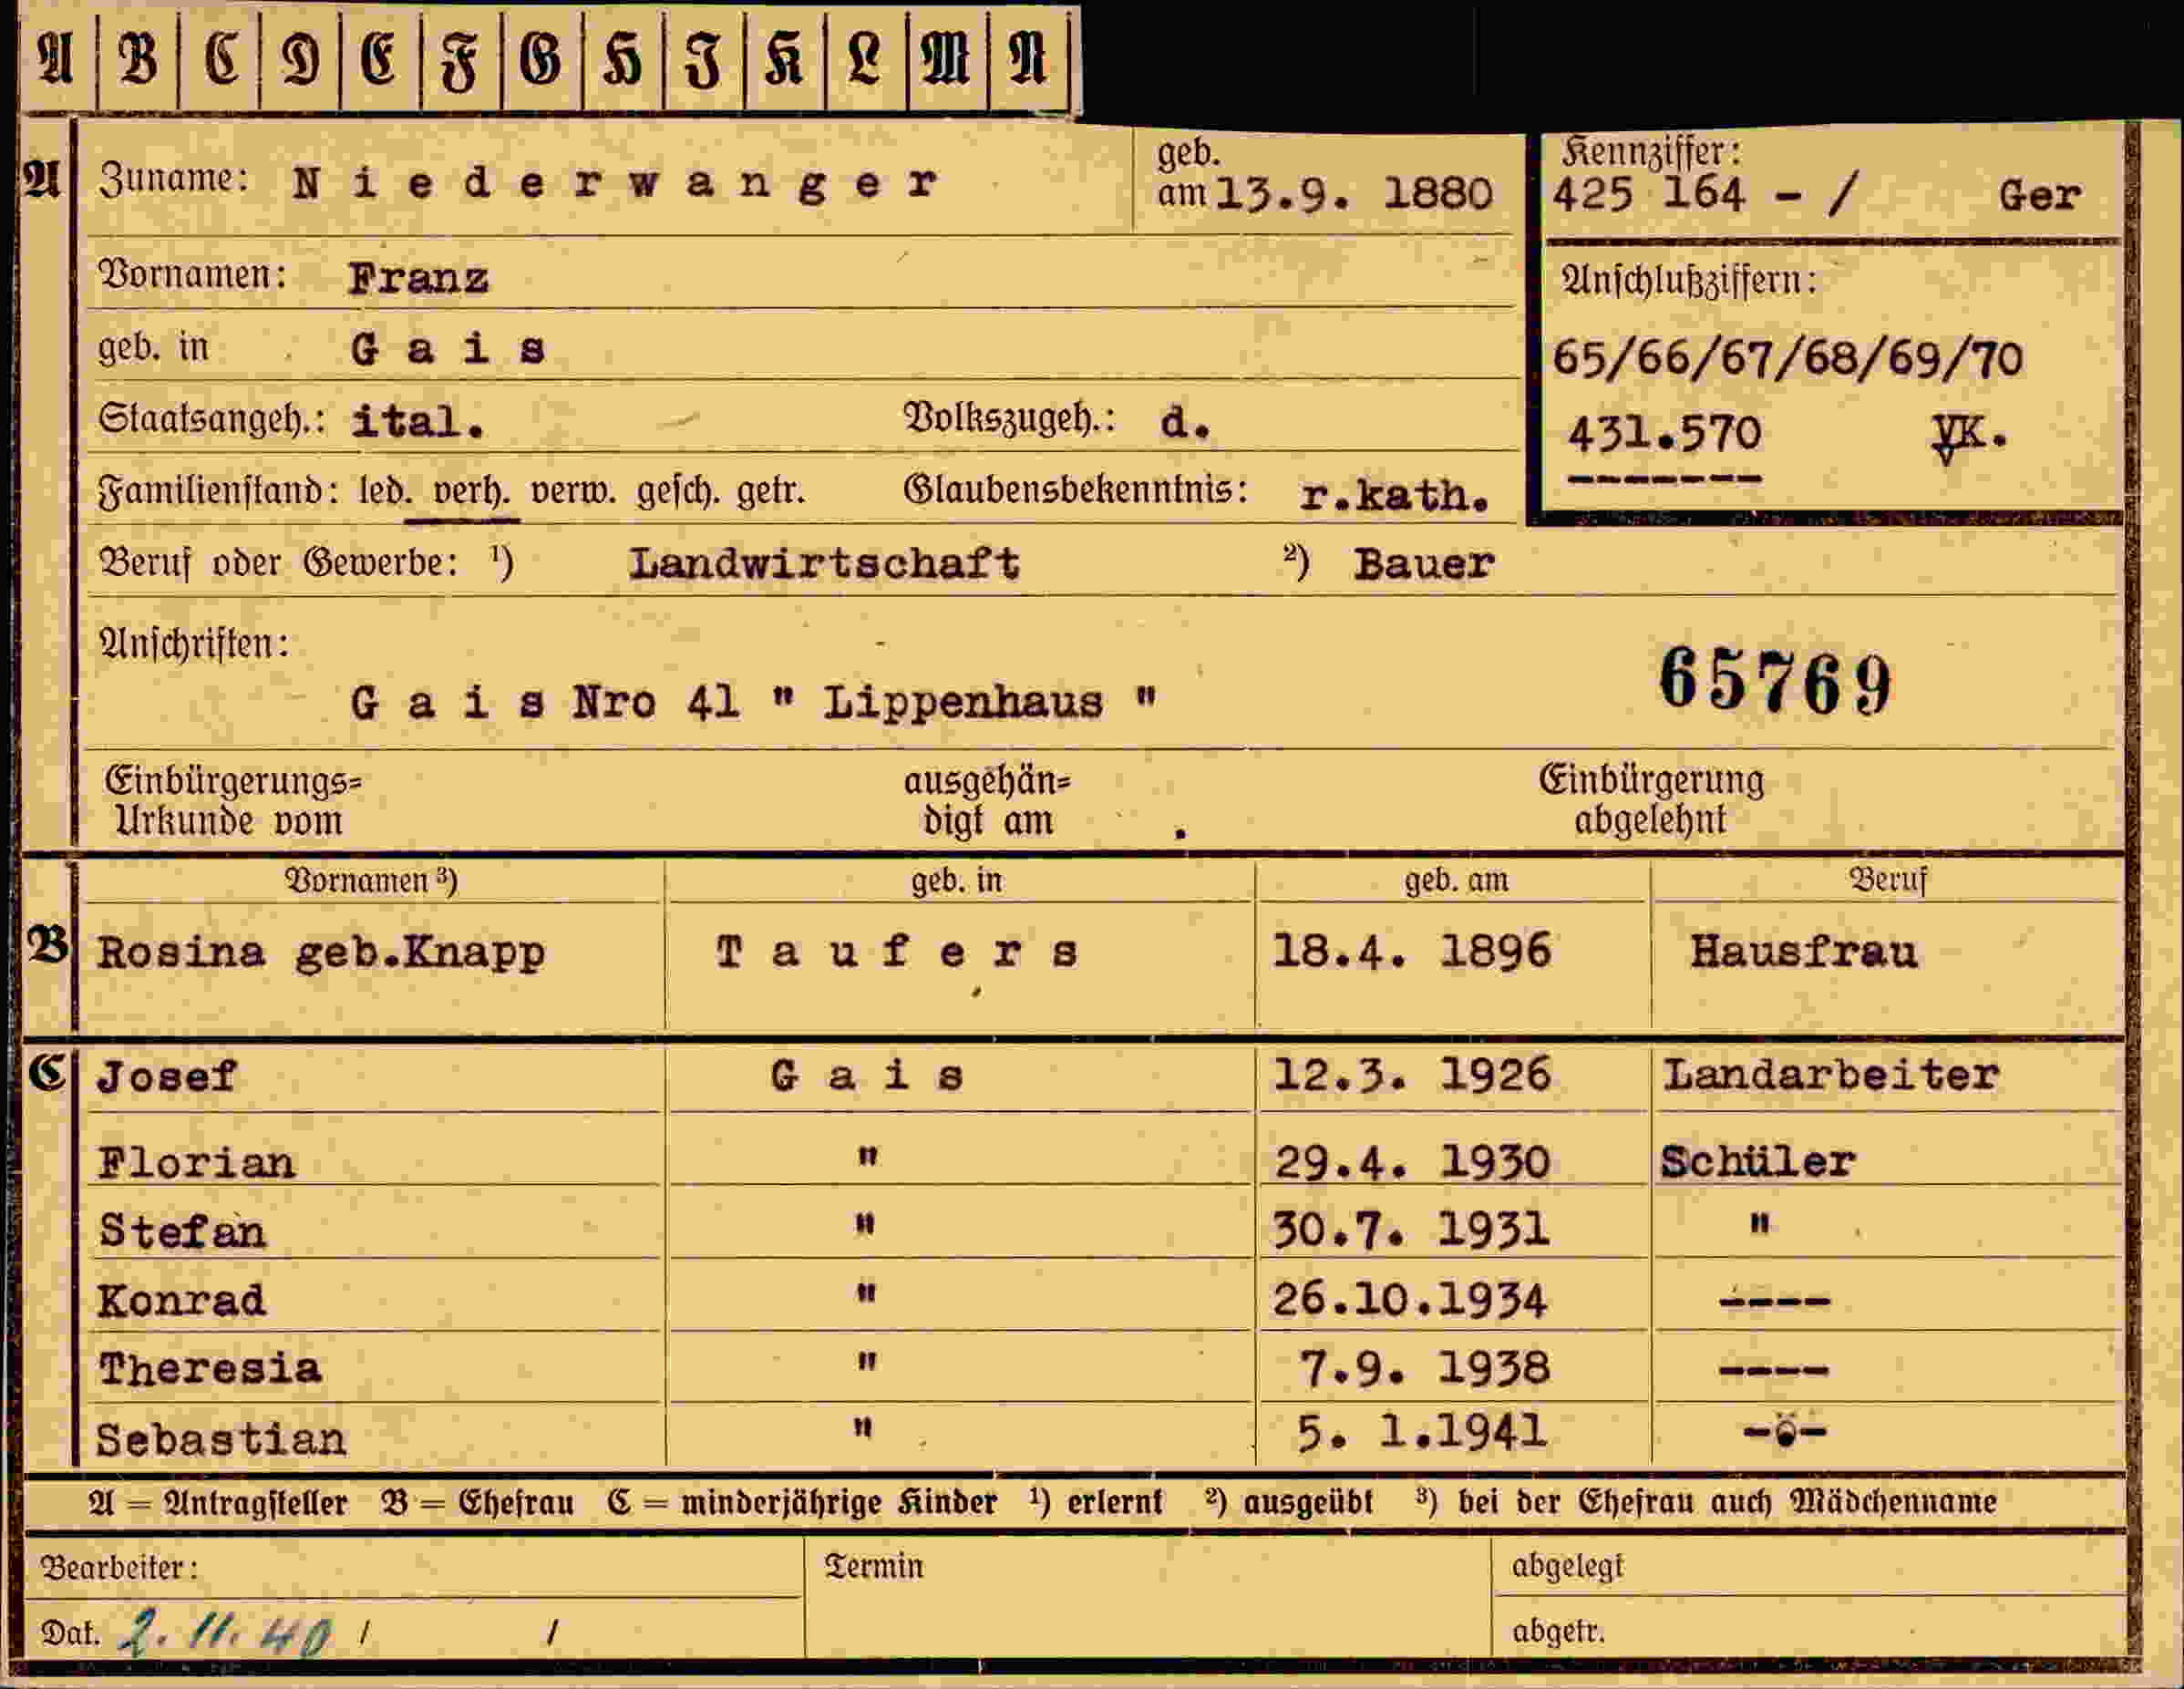 A B C D E F G H I K L M N
A Zuname: Niederwanger geb. am 13.9. 1880
Kennziffer:
425 164 - / Ger
Vornamen: Franz
Anschlußziffern:
geb. in Gais
65/66/67/68/69/70
Staatsangeh.: ital. Volkszugeh.: d.
431.570 VK.
-------
Familienstand: led. verh. verw. gesch. getr. Glaubensbekenntnis: r.kath.
Beruf oder Gewerbe: ¹) Landwirtschaft ²) Bauer
Anschriften:
Gais Nro 41 " Lippenhaus " 65769
Einbürgerungs= ausgehän= Einbürgerung
Urkunde vom digt am . abgelehnt
Vornamen ³) geb. in geb. am Beruf
B Rosina geb.Knapp Taufers 18.4. 1896 Hausfrau
C Josef Gais 12.3. 1926 Landarbeiter
Florian " 29.4. 1930 Schüler
Stefan " 30.7. 1931 "
Konrad " 26.10.1934 ----
Theresia " 7.9. 1938 ----
Sebastian " 5. 1.1941 -ö-
A = Antragsteller B = Ehefrau C = minderjährige Kinder ¹) erlernt ²) ausgeübt ³) bei der Ehefrau auch Mädchenname
Bearbeiter: Termin abgelegt
Dat. 2.11.40 / / abgetr.